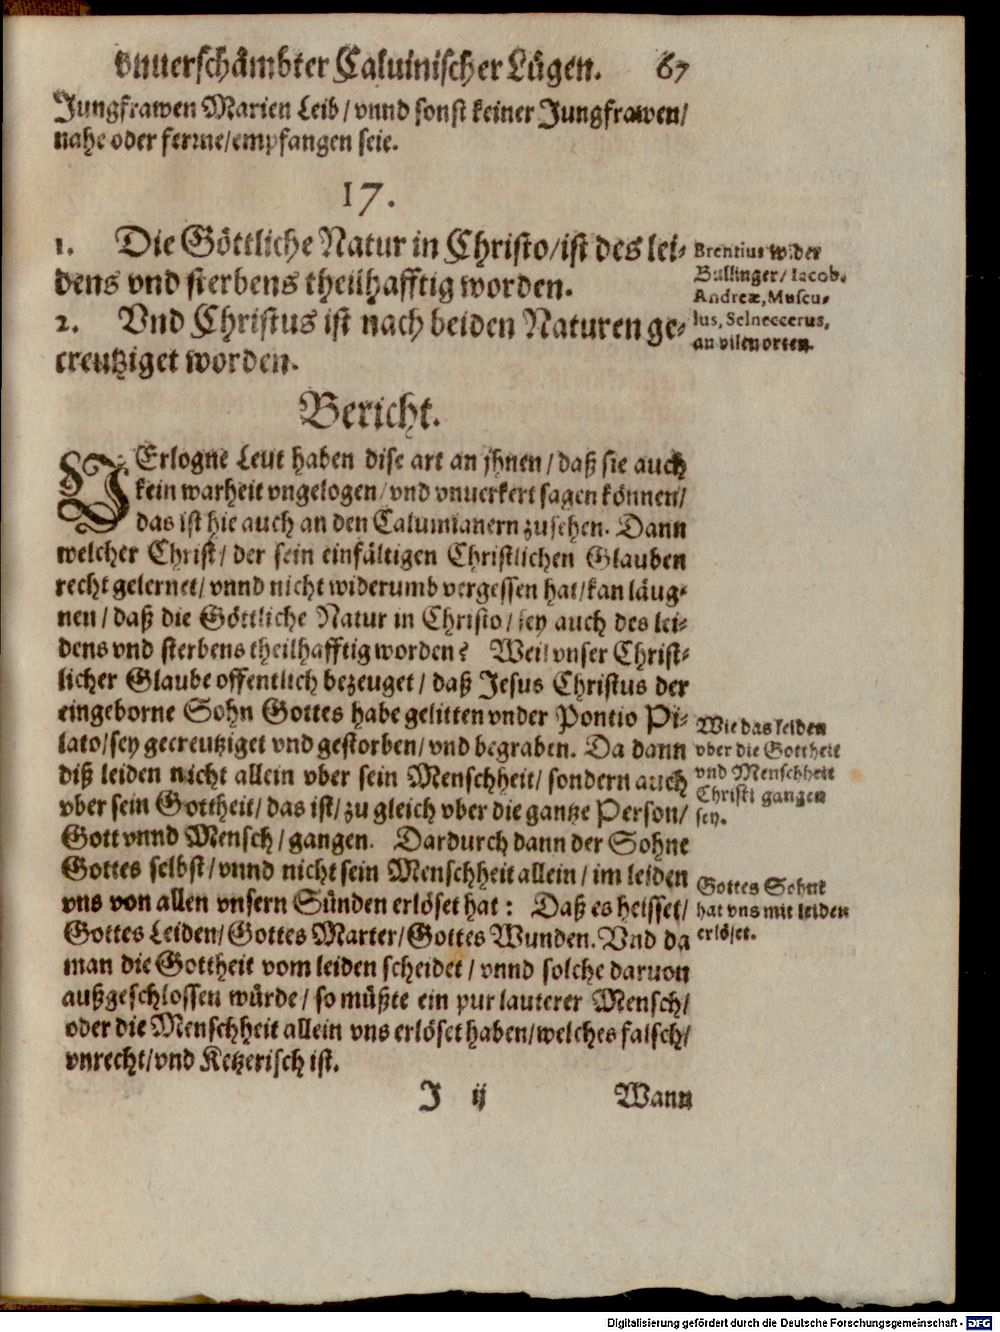 vnuerschämbter Caluinischer Lügen. 67
Jungfrawen Marien Leib/ vnnd sonst keiner Jungfrawen/
nahe oder ferrne/empfangen seie.
17.
1. Die Göttliche Natur in Christo/ist des lei-
dens vnd sterbens theilhafftig worden.
2. Vnd Christus ist nach beiden Naturen ge-
creutziget worden.
Brentius wider
Bullinger/ Iacob.
Andreæ, Muscu-
lus, Selneccerus,
an vilen orten.
Bericht.
VErlogne Leut haben dise art an jhnen/ daß sie auch
kein warheit vngelogen/ vnd vnuerkert sagen können/
das ist hie auch an den Caluinianern zusehen. Dann
welcher Christ/ der sein einfältigen Christlichen Glauben
recht gelernet/ vnnd nicht widerumb vergessen hat/kan läug-
nen/ daß die Göttliche Natur in Christo/ sey auch des lei-
dens vnd sterbens theilhafftig worden? Weil vnser Christ-
licher Glaube offentlich bezeuget/ daß Jesus Christus der
eingeborne Sohn Gottes habe gelitten vnder Pontio Pi-
lato/sey gecreutziget vnd gestorben/ vnd begraben. Da dann
diß leiden nicht allein vber sein Menschheit/ sondern auch
vber sein Gottheit/ das ist/ zu gleich vber die gantze Person/
Gott vnnd Mensch/ gangen. Dardurch dann der Sohne
Gottes selbst/ vnnd nicht sein Menschheit allein/ im leiden
vns von allen vnsern Sünden erlöset hat: Daß es heisset/
Gottes Leiden/ Gottes Marter/ Gottes Wunden. Vnd da
man die Gottheit vom leiden scheidet/ vnnd solche daruon
außgeschlossen würde/ so müßte ein pur lauterer Mensch/
oder die Menschheit allein vns erlöset haben/welches falsch/
vnrecht/vnd Ketzerisch ist.
Wie das leiden
vber die Gottheit
vnd Menschheit
Christi gangen
sey.
Gottes Sohne
hat vns mit leiden
erlöset.
J ij Wann
Digitalisierung gefördert durch die Deutsche Forschungsgemeinschaft - DFG